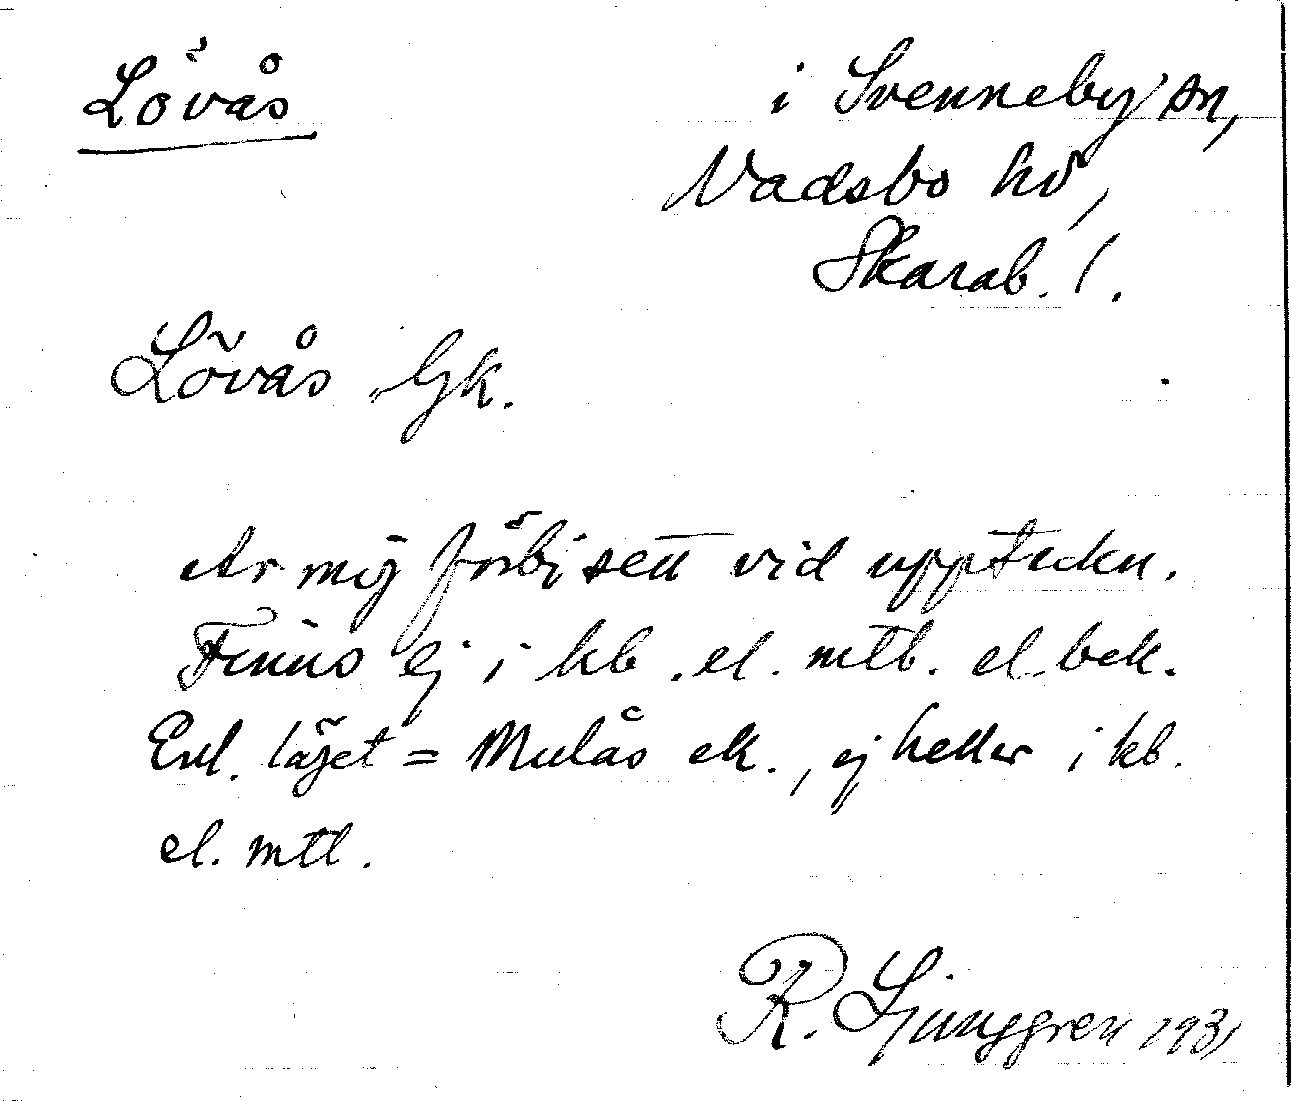 Lövås
i Svenneby sn,
Vadsbo hd,
Skarab. l.
Lövås Gk.
Av mig förbisett vid uppteckn.
Finns ej i kb. el. mtl. el. bek.
Enl. läget = Mulås ek., ej heller i kb.
el. mtl.
R. Ljunggren 1931